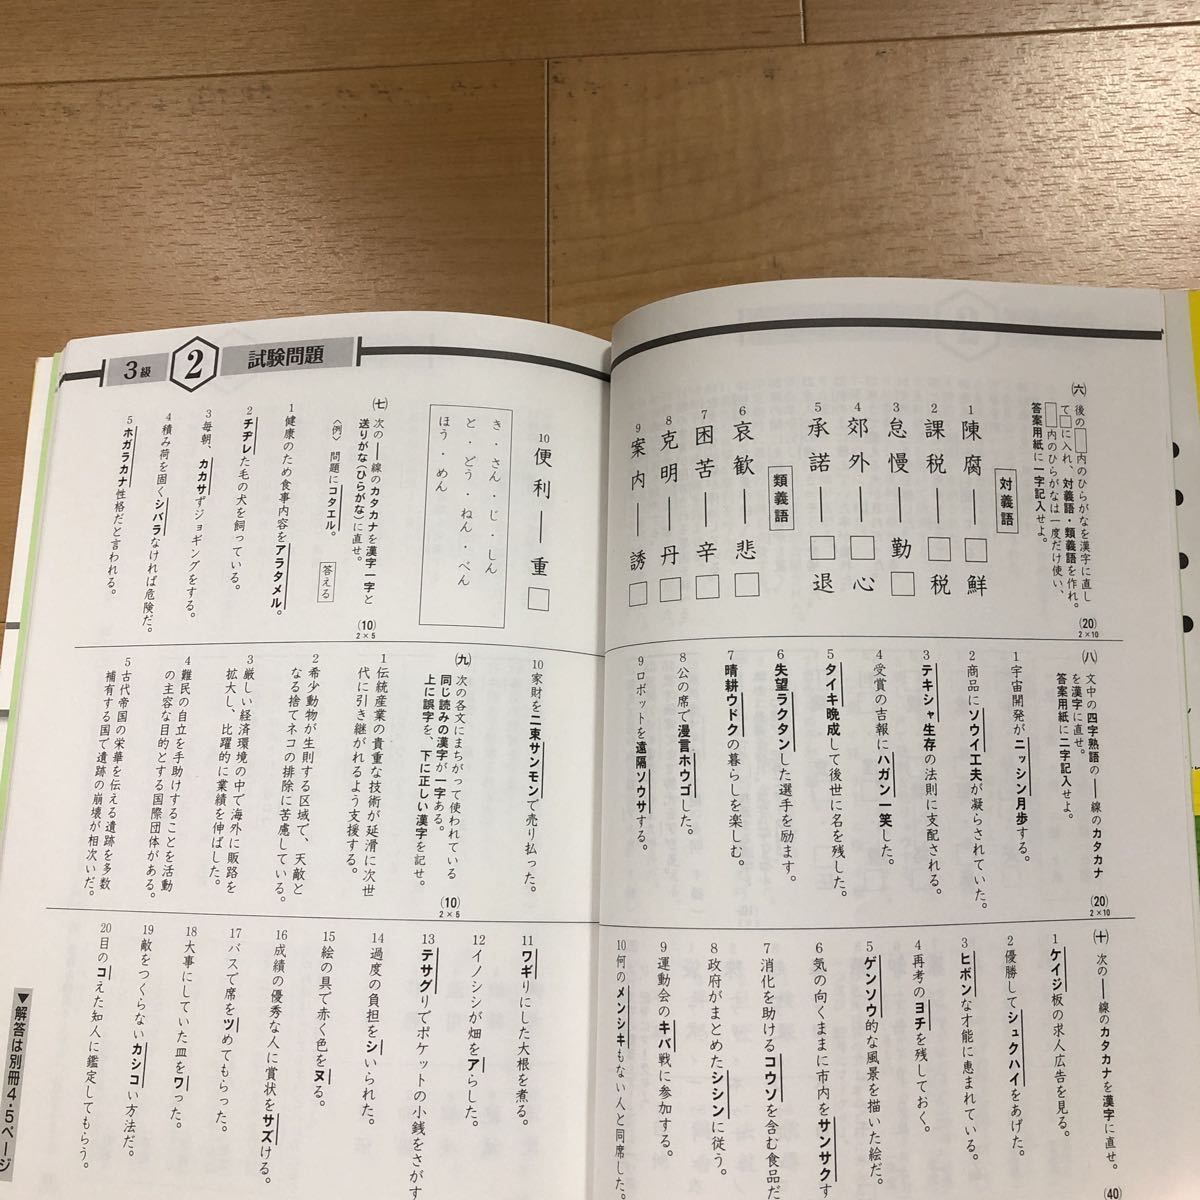 (六) 後の□内のひらがなを漢字に直し
て□に入れ、対義語・類義語を作れ。
□内のひらがなは一度だけ使い、
答案用紙に一字記入せよ。
(20)
2×10
対義語
1 陳腐―□鮮
2 課税―□税
3 怠慢―勤□
4 郊外―□心
5 承諾―□退
類義語
6 哀歓―悲□
7 困苦―□辛
8 克明―丹□
9 案内―誘□
10 便利―重□
き・さん・じ・しん
と・どう・ねん・べん
ほう・めん
3級
2
試験問題
(七) 次の―線のカタカナを漢字一字と
送りがな(ひらがな)に直せ。
〈例〉問題にコタエル。 答える
(10)
2×5
1 健康のため食事内容をアラタメル。
2 チヂレた毛の犬を飼っている。
3 毎朝、カカサずジョギングをする。
4 積み荷を固くシバラなければ危険だ。
5 ホガラカナ性格だと言われる。
(八) 文中の四字熟語の―線のカタカナ
を漢字に直せ。
答案用紙に二字記入せよ。
(20)
2×10
1 宇宙開発がニッシン月歩する。
2 商品にソウイ工夫が凝らされていた。
3 テキシャ生存の法則に支配される。
4 受賞の吉報にハガン一笑した。
5 タイキ晩成して後世に名を残した。
6 失望ラクタンした選手を励ます。
7 晴耕ウドクの暮らしを楽しむ。
8 公の席で漫言ホウゴした。
9 ロボットを遠隔ソウサする。
10 家財を二束サンモンで売り払った。
(九) 次の各文にまちがって使われている
同じ読みの漢字が一字ある。
上に誤字を、下に正しい漢字を記せ。
(10)
2×5
1 伝統産業の貴重な技術が延滑に次世
代に引き継がれるよう支援する。
2 希少動物が生則する区域で、天敵と
なる捨てネコの排除に苦慮している。
3 厳しい経済環境の中で海外に販路を
拡大し、比躍的に業績を伸ばした。
4 難民の自立を手助けすることを活動
の主容な目的とする国際団体がある。
5 古代帝国の栄華を伝える遺跡を多数
補有する国で遺跡の崩壊が相次いだ。
(十) 次の―線のカタカナを漢字に直せ。
(40)
1 ケイジ板の求人広告を見る。
2 優勝してシュクハイをあげた。
3 ヒボンな才能に恵まれている。
4 再考のヨチを残しておく。
5 ゲンソウ的な風景を描いた絵だ。
6 気の向くままに市内をサンサクす
7 消化を助けるコウソを含む食品だ
8 政府がまとめたシシンに従う。
9 運動会のキバ戦に参加する。
10 何のメンシキもない人と同席した。
11 ワギりにした大根を煮る。
12 イノシシが畑をアらした。
13 テサグりでポケットの小銭をさがす
14 過度の負担をシいられた。
15 絵の具で赤く色をヌる。
16 成績の優秀な人に賞状をサズける。
17 バスで席をツめてもらった。
18 大事にしていた皿をワった。
19 敵をつくらないカシコい方法だ。
20 目のコえた知人に鑑定してもらう。
▼解答は別冊4・5ページ